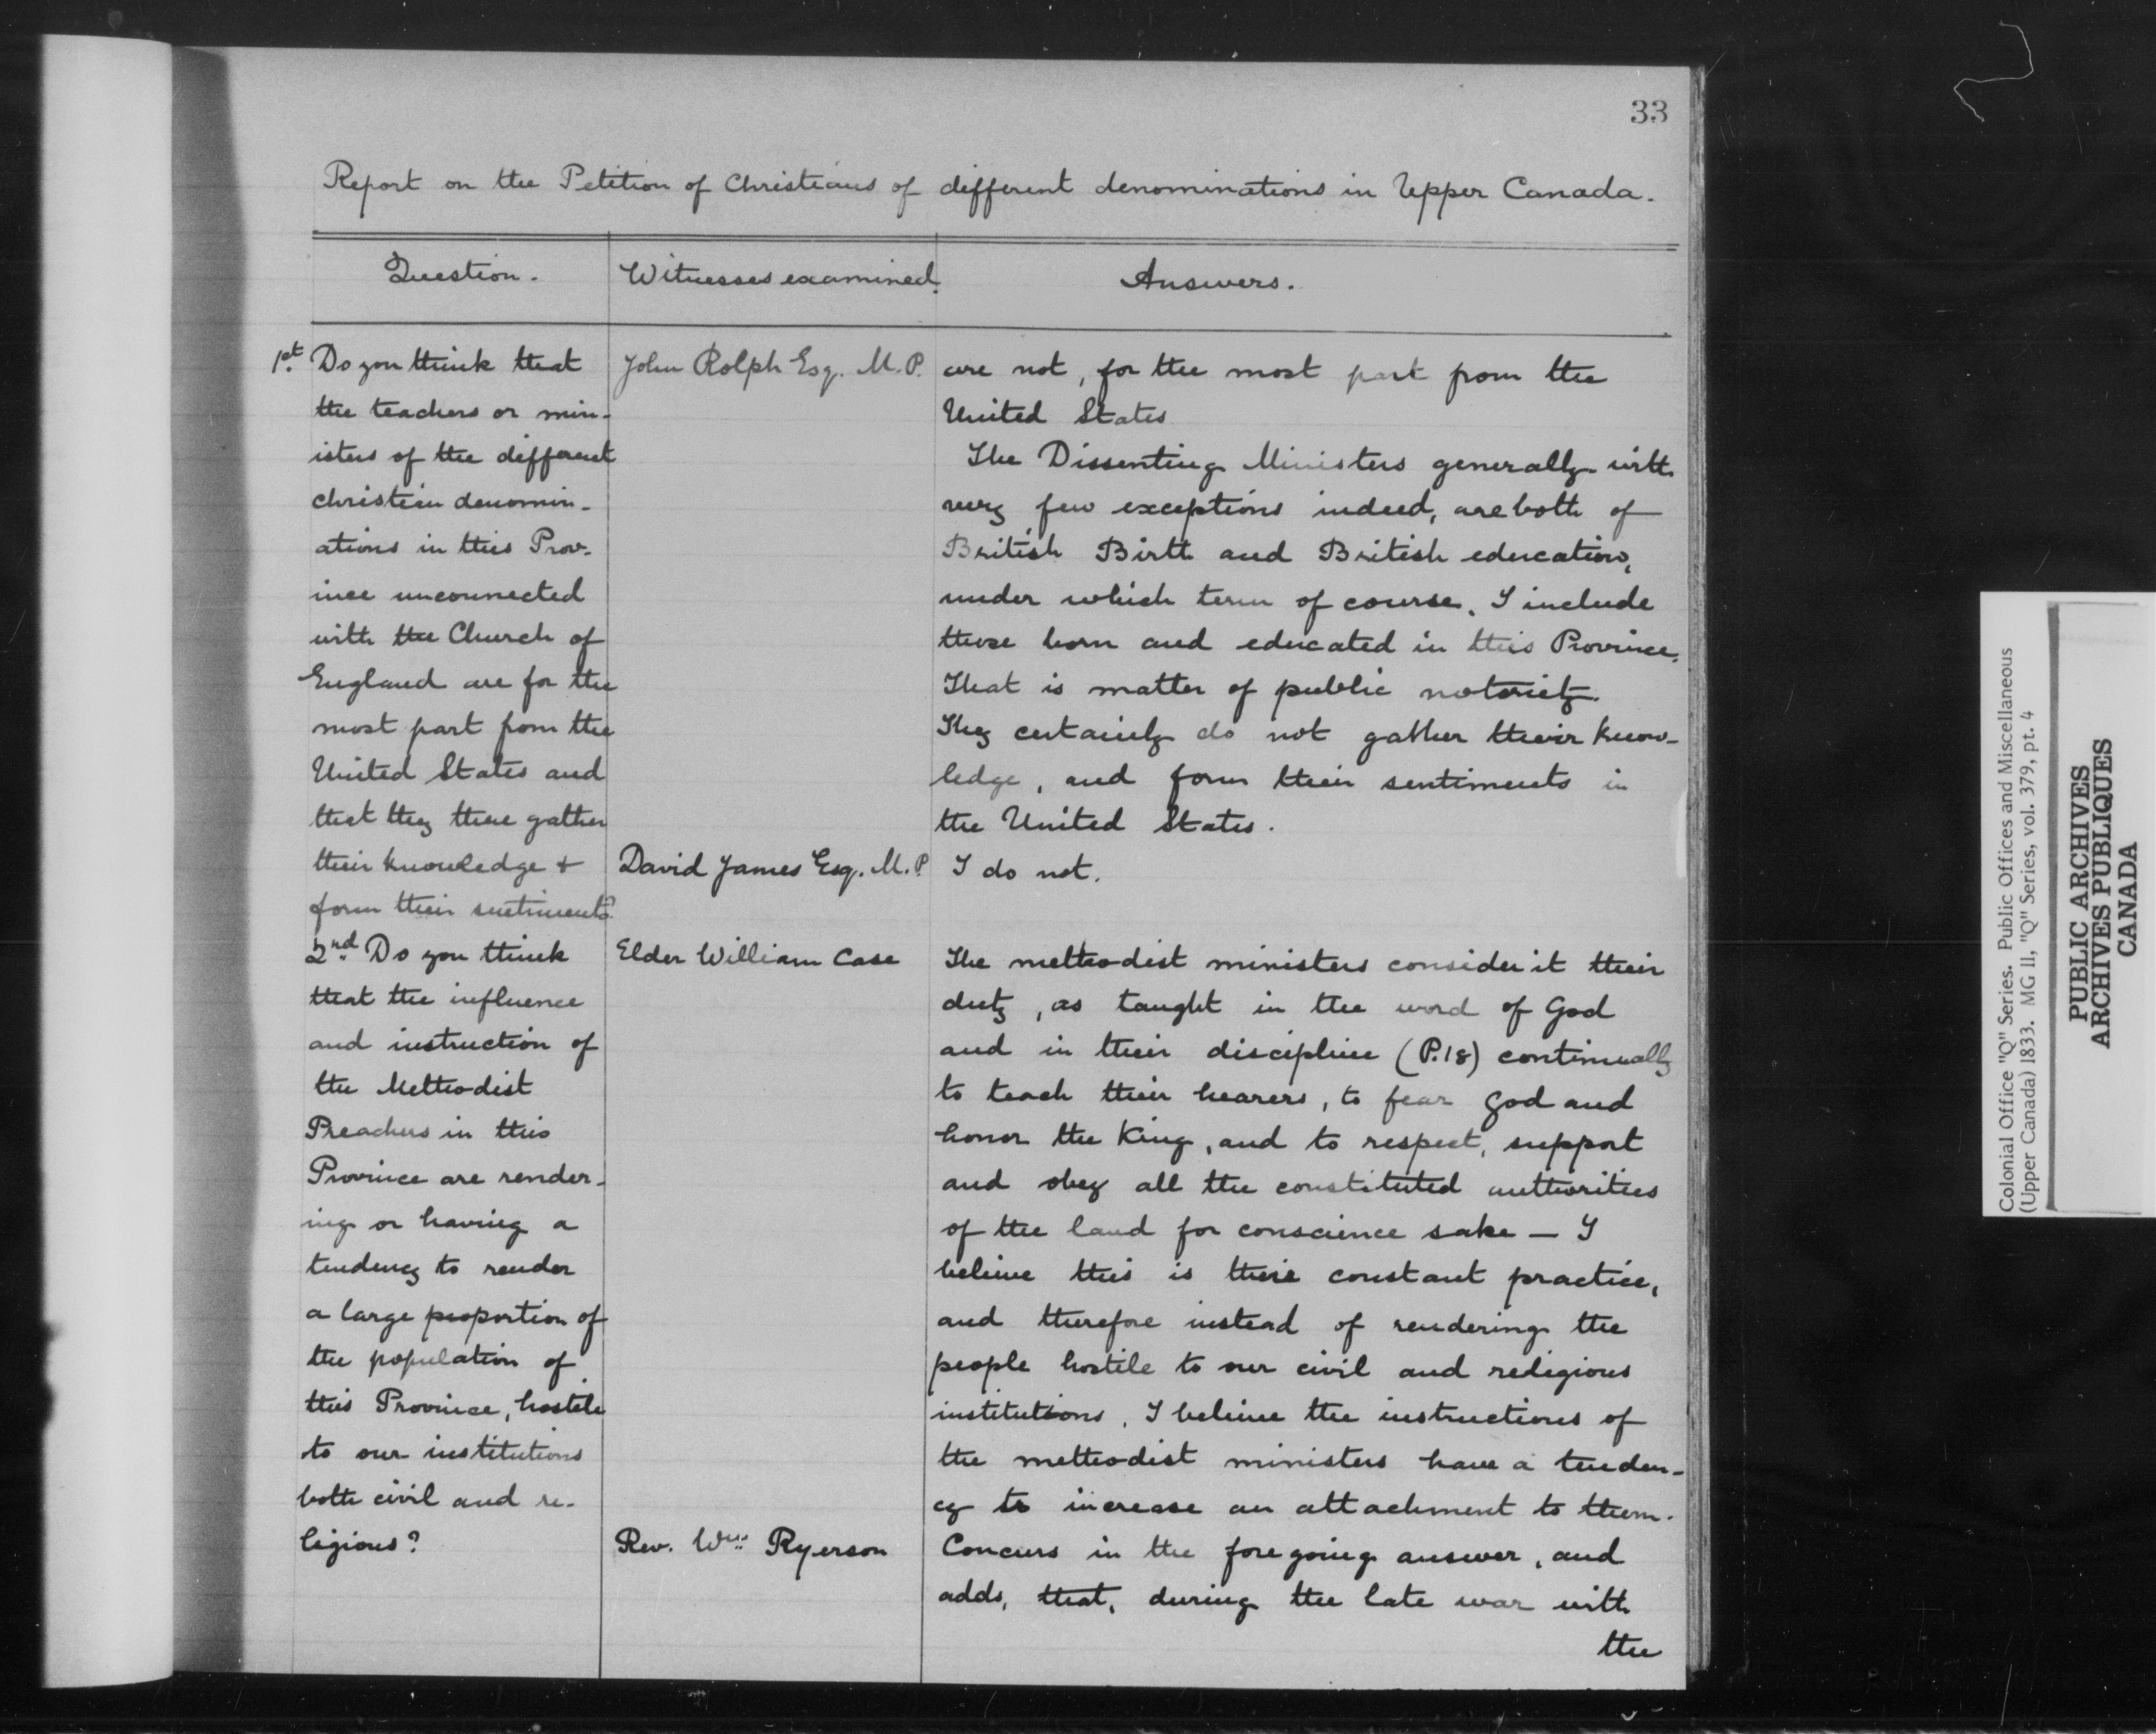 33
Report on the Petition of Christians of different denominations in Upper Canada.
Question.
Witnesses examined.
Answers.
1st. Do you think that
the teachers or min-
isters of the different
christian denomin-
ations in this Prov-
ince unconnected
with the Church of
England are for the
most part from the
United States and
that they there gather
their knowledge &
form their sentiments?
John Rolph Esq. M.P.
are not, for the most part from the
United States
The Dissenting Ministers generally with
very few exceptions indeed, are both of
British Birth and British education,
under which term of course, I include
those born and educated in this Province.
That is matter of public notoriety.
They certainly do not gather their know-
ledge, and form their sentiments in
the United States.
David James Esq. M.P.
I do not.
2nd. Do you think
that the influence
and instruction of
the Methodist
Preachers in this
Province are render-
ing or having a
tendency to render
a large proportion of
the population of
this Province, hostile
to our institutions
both civil and re-
ligious?
Elder William Case
The methodist ministers consider it their
duty, as taught in the word of God
and in their discipline (P.18) continually
to teach their hearers, to fear God and
honor the King, and to respect, support
and obey all the constituted authorities
of the land for conscience sake — I
believe this is their constant practice,
and therefore instead of rendering the
people hostile to our civil and redigious
institutions, I believe the instructions of
the methodist ministers have a tenden-
cy to increase an attachment to them.
Rev. Wm. Ryerson
Concurs in the foregoing answer, and
adds, that, during the late war with
the
Colonial Office "Q" Series. Public Offices and Miscellaneous
(Upper Canada) 1833. MG 11, "Q" Series, vol. 379, pt. 4
PUBLIC ARCHIVES
ARCHIVES PUBLIQUES
CANADA